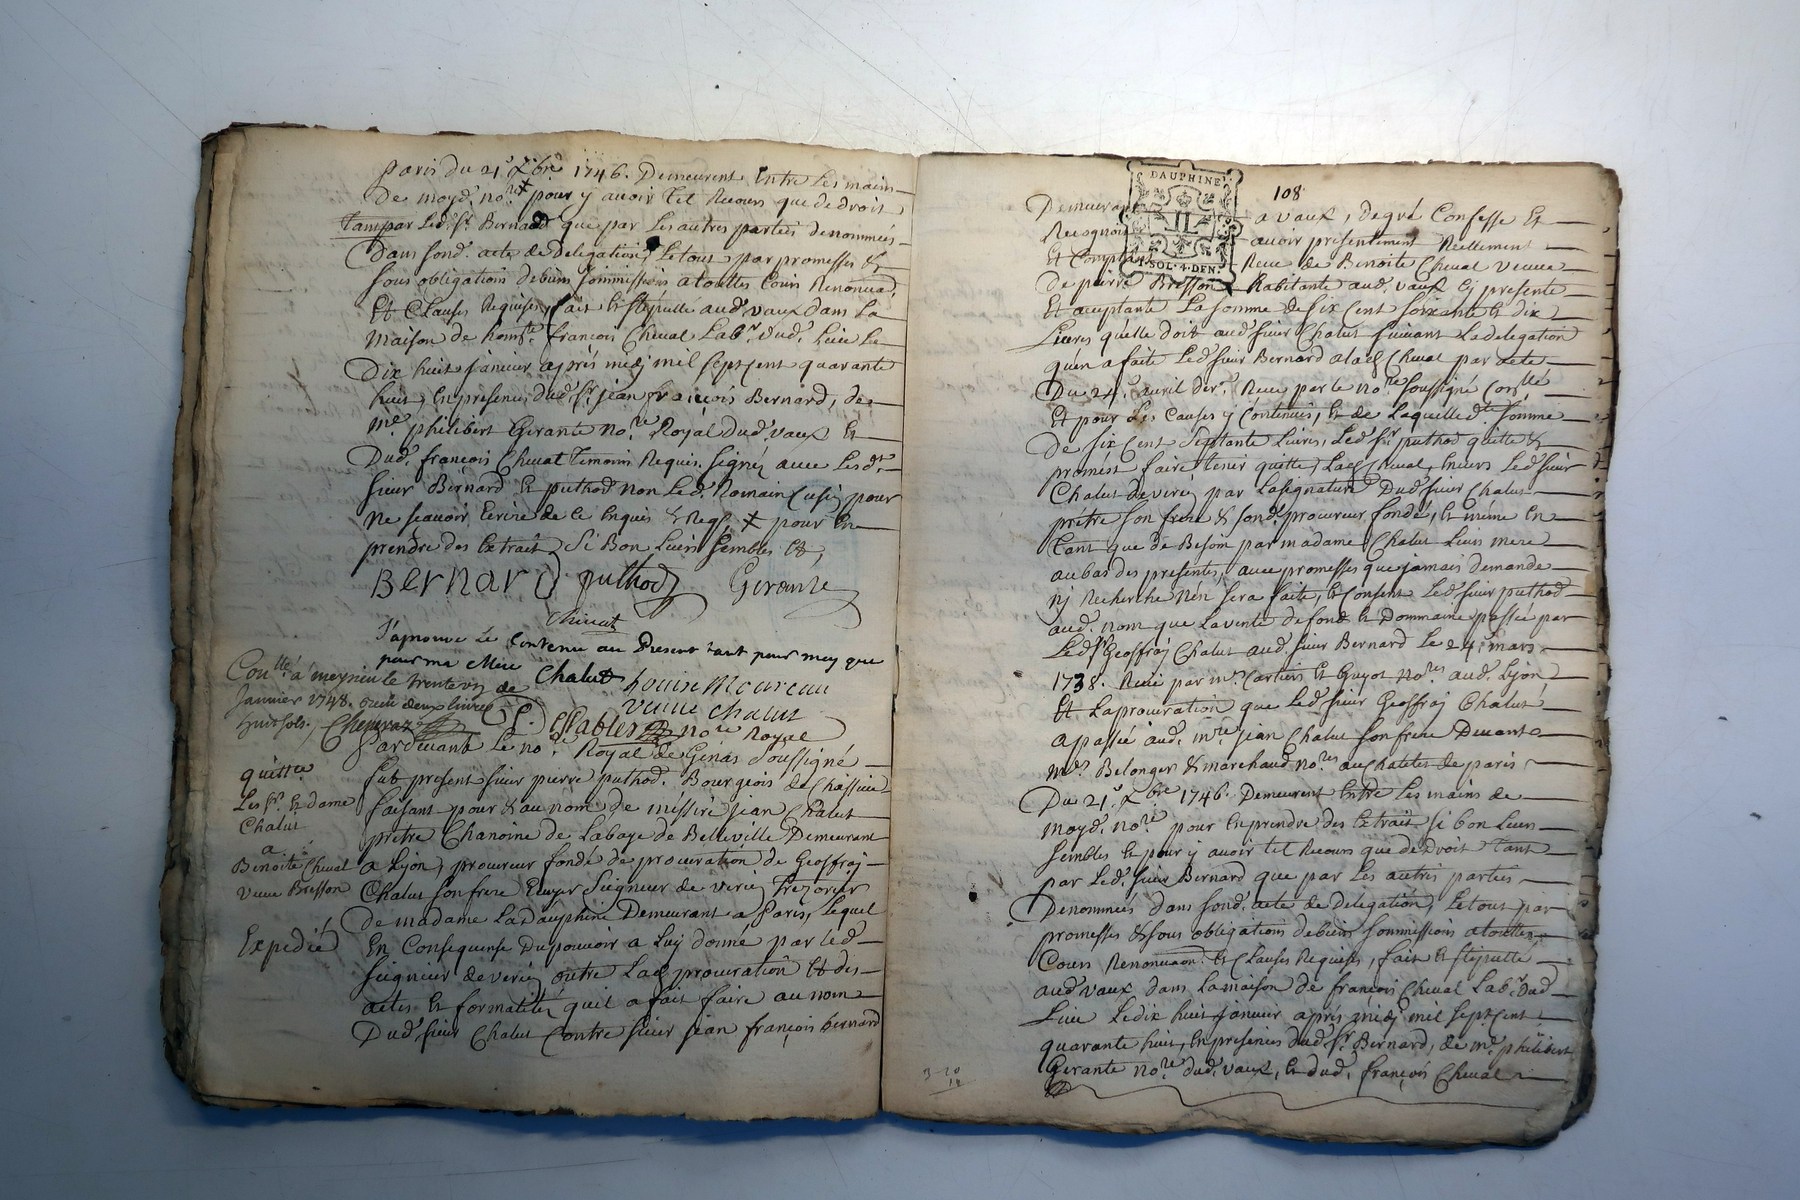 paris du 21e Xbre 1746. Demeurent Entre Les mains
De moyd. nore ✗ pour y avoir tel Recours que de droit
tampar Led. Sr. Bernard que par Les autres parties denommées
Dans sond. acte de delegation, Letout par promesses &
sous obligations de biens sommissions a touttes Cours Renonuaõ.
Et Clauses Requises, fait Et stipullé aud. vaux dans La
maison de honnte. françois Cheval Labr. dud. Lieu Le
Dix huit Janvier après midj mil sept Cent quarante
huit, En presence dud. Sr. jean françois Bernard, de
me. philibert Gerante nore. Royal dud. vaux Et
Dud. françois Cheval temoins Requis signés avec Lesdt.
sieur Bernard Et puthod non Led. Romain pour
ne sçavoir Ecrire de Ce Enquis & Reqs. ✗ pour En
prendre des Extraits Si Bon Leurs semble &,
Bernard puthod Gerante
Cheval
J'aprouve Le Contenu au Present tant pour moy que
pour ma Mere Chalut Louise Moureau
veuve Chalut
Conllé. a meyzieu le trente un de
Janvier 1748. recu deux livres
huit sols.
nore Royal
Pardevant Le nore. Royal de Genas Soussigné
quittce
Les Sr. Et dame
Chalut
a
Benoite Cheval
veuve Bresson
Expedié
fut present sieur pierre puthod. Bourgeois de Chassieu
faisant pour & au nom de messire jean Chalut
prêtre Chanoine de Labaye de Belleville Demeurant
a Lyon, procureur fondé de procuration de Geoffroj
Chalut son frere Ecuyer Seigneur de verin Trezorier
de madame La Dauphine Demeurant a Paris, Lequel
En Consequense Du pouvoir a Luy donné par led.
seigneur de verin outre Lad. procuration Et des
actes Et formalités quil a fait faire au nom
Dud. sieur Chalut Contre sieur jean françois bernard
DAUPHINE
SOL·4·DEN
108
Demeurant a vaux, de gré Confesse Et
Recognoit avoir présentement Réellement
Et Comptant Receu de Benoite Cheval veuve
de pierre Bresson habitante aud. vaux Cj presente
Et acceptante La somme de six Cent soixante Et dix
Livres quelle doit aud. sieur Chalut suivant La delegation
quen a faite Led. sieur Bernard a lad. Cheval par acte
Du 24e. avril der. Receu par le nore. soussigné Conllé
Et pour Les Causes y Contenues, Et de Laquelle dte. somme
De six Cent Septante Livres, Led. Sr. puthod quitte &
promést faire tenir quitte Lad. Cheval, Envers Led. sieur
Chalut de verin par La signature Dud. sieur Chalut
prêtre son frere & sond. procureur fondé, Et même En
tant que de Besoin par madame Chalut Leur mere
au bas des presentes, avec promesses que jamais demande
nj Recherche nen sera faite, Et Consent Led. sieur puthod
aud. nom que La vente de fond Et Dommaine passée par
Led. Sr. Geoffroj Chalut aud. sieur Bernard Le 24e. mars
1738. Receue par mes. Cartier Et Guyot nores. aud. Lyon
Et La procuration que Led. sieur Geoffroj Chalut
a passée aud. mre. jean Chalut son frere Devant
mes. Belanger & marchand nores. au Chatelet de paris
Du 21e. Xbre 1746. Demeurent Entre Les mains de
moyd. nore. pour En prendre des Extraits Si bon Leur
semble Et pour y avoir tel Recours que de Droit tant
par Led. sieur Bernard que par Les autres parties
Denommées dans sond. acte de Delegation, Letout par
promesses & sous obligations de biens sommissions a touttes
Cours Renonuaon. Et Clauses Requises, fait Et stipullé
aud. vaux dans La maison de françois Cheval Labr. dud.
Lieu Le dix huit Janvier après midj mil sept Cent
quarante huit, En presences dud. Sr. Bernard, de me. philibert
Gerante nore. dud. vaux, Et dud. françois Cheval